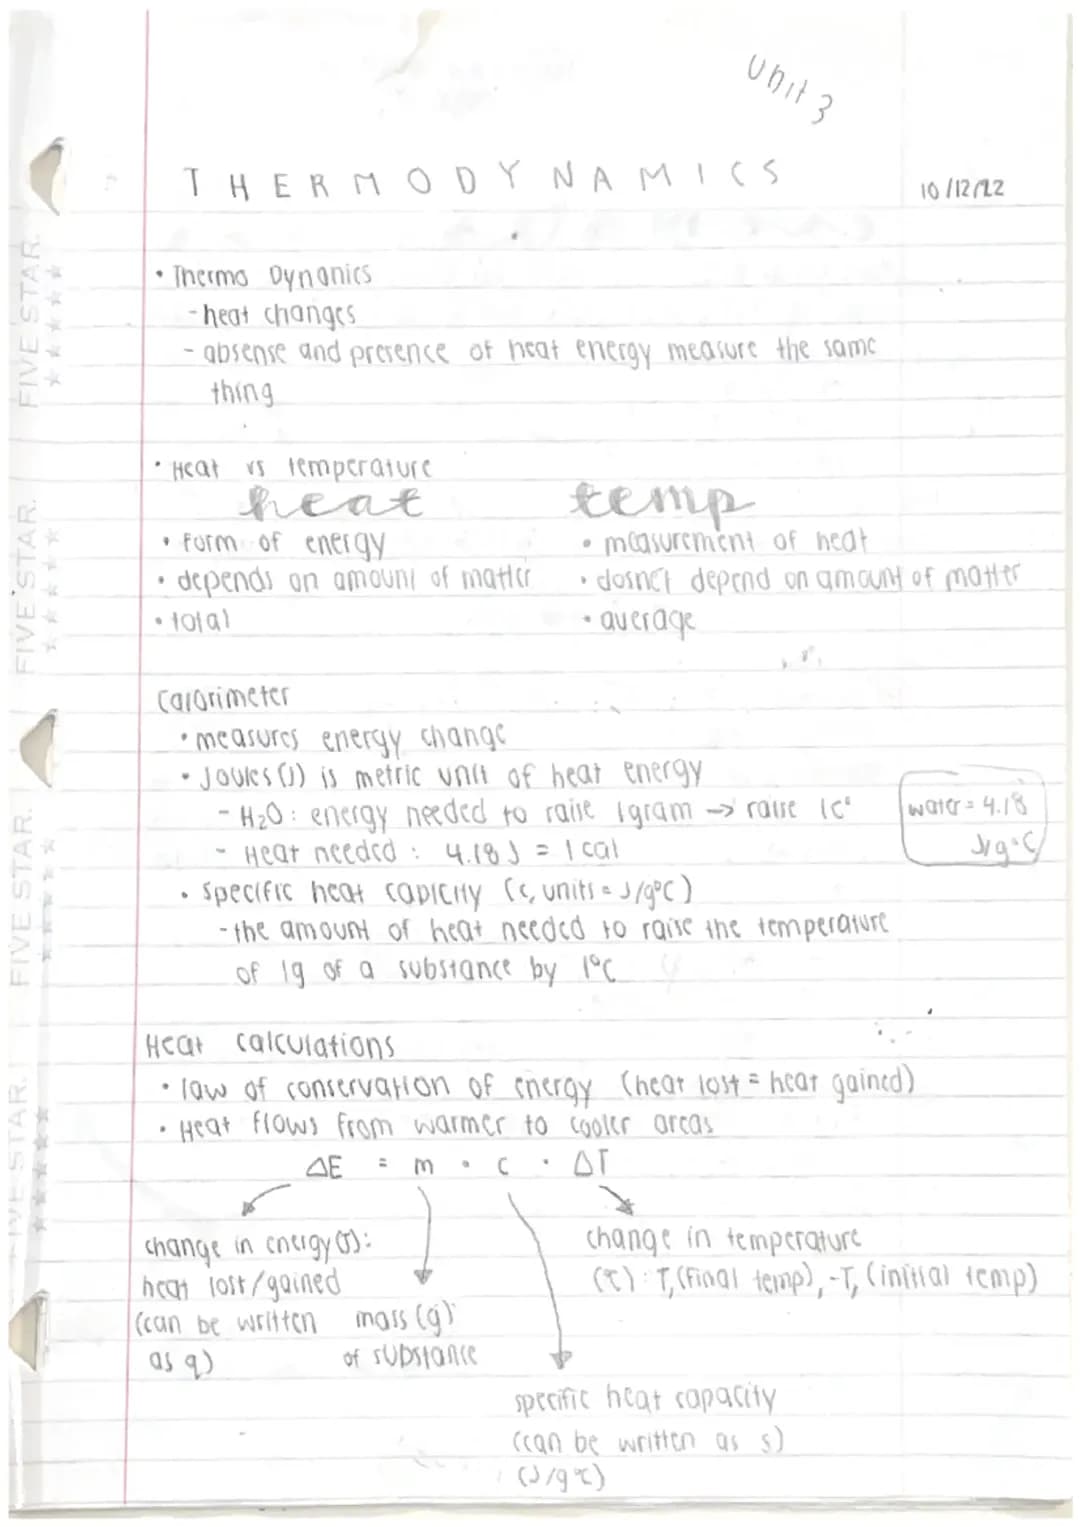 Unit 3
THERMODYNAMICS
10/12/22
• Thermo Dynanics
- heat changes
- absense and presence of heat energy measure the same
thing
• Heat vs temperature
heat temp
• form of energy • measurement of heat
• depends on amount of matter • dosnet depend on amount of matter
• total • average
Calorimeter
• measures energy change
• Joules (J) is metric unit of heat energy
- H₂O: energy needed to raise 1gram → raise 1C° water = 4.18
- Heat needed : 4.18 J = 1 cal J/g°C
• specific heat capicity (c, units = J/g°C)
- the amount of heat needed to raise the temperature
of 1g of a substance by 1°C
Heat calculations
• law of conservation of energy (heat lost = heat gained)
• Heat flows from warmer to cooler areas
ΔE = m • c • ΔT
change in energy (J): change in temperature
heat lost/gained (°C): T, (final temp), -T, (initial temp)
(can be written mass (g)
as q) of substance
specific heat capacity
(can be written as s)
(J/g°C)
FIVE STAR.
FIVE STAR.
FIVE STAR.
FIVE STAR.